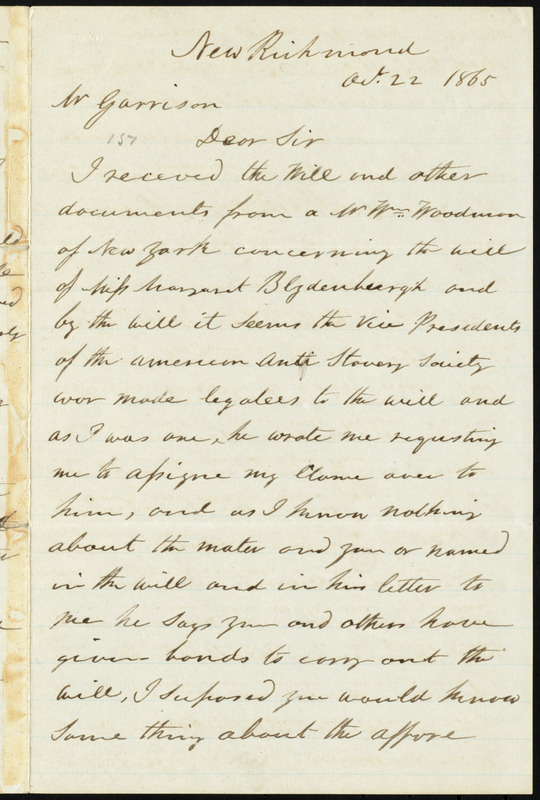 New Richmond
Oct. 22 1865
Mr Garrison
157
Dear Sir
I receved the Will and other
documents from a Mr Wm. Woodman
of New York concerning the will
of Miss Margaret Blydenburgh and
by the will it seems the Vice Presidents
of the american Anti Slavery Society
wor made legatees to the will and
as I was one, he wrote me requsting
me to assigne my Clame over to
him, and as I know nothing
about the mater and you or named
in the will and in his letter to
me he says you and others have
given bonds to carry out the
will, I suposed you would know
some thing about the affore